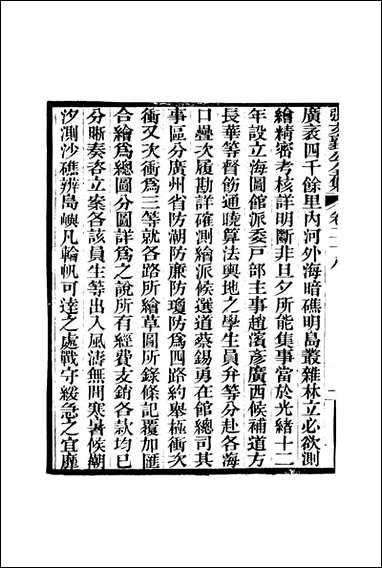 張文襄公全集 卷二十八
廣袤四千餘里內河外海暗礁明島叢雜林立必欲測
繪精密考核詳明斷非旦夕所能集事當於光緒十二
年設立海圖館派委戶部主事趙濱彥廣西候補道方
長華等督飭通曉算法輿地之學生員弁等分赴各海
口疊次履勘詳確測繪派候選道蔡錫勇在館總司其
事區分廣州省防潮防廉防瓊防爲四路約舉極衝次
衝又次衝爲三等就各路所繪草圖所錄條記覆加匯
合繪爲總圖分圖詳爲之說所有經費支銷各款均已
分晰奏咨立案各該員生等出入風濤無間寒暑候潮
汐測沙礁辨島嶼凡輪帆可達之處戰守緩急之宜靡